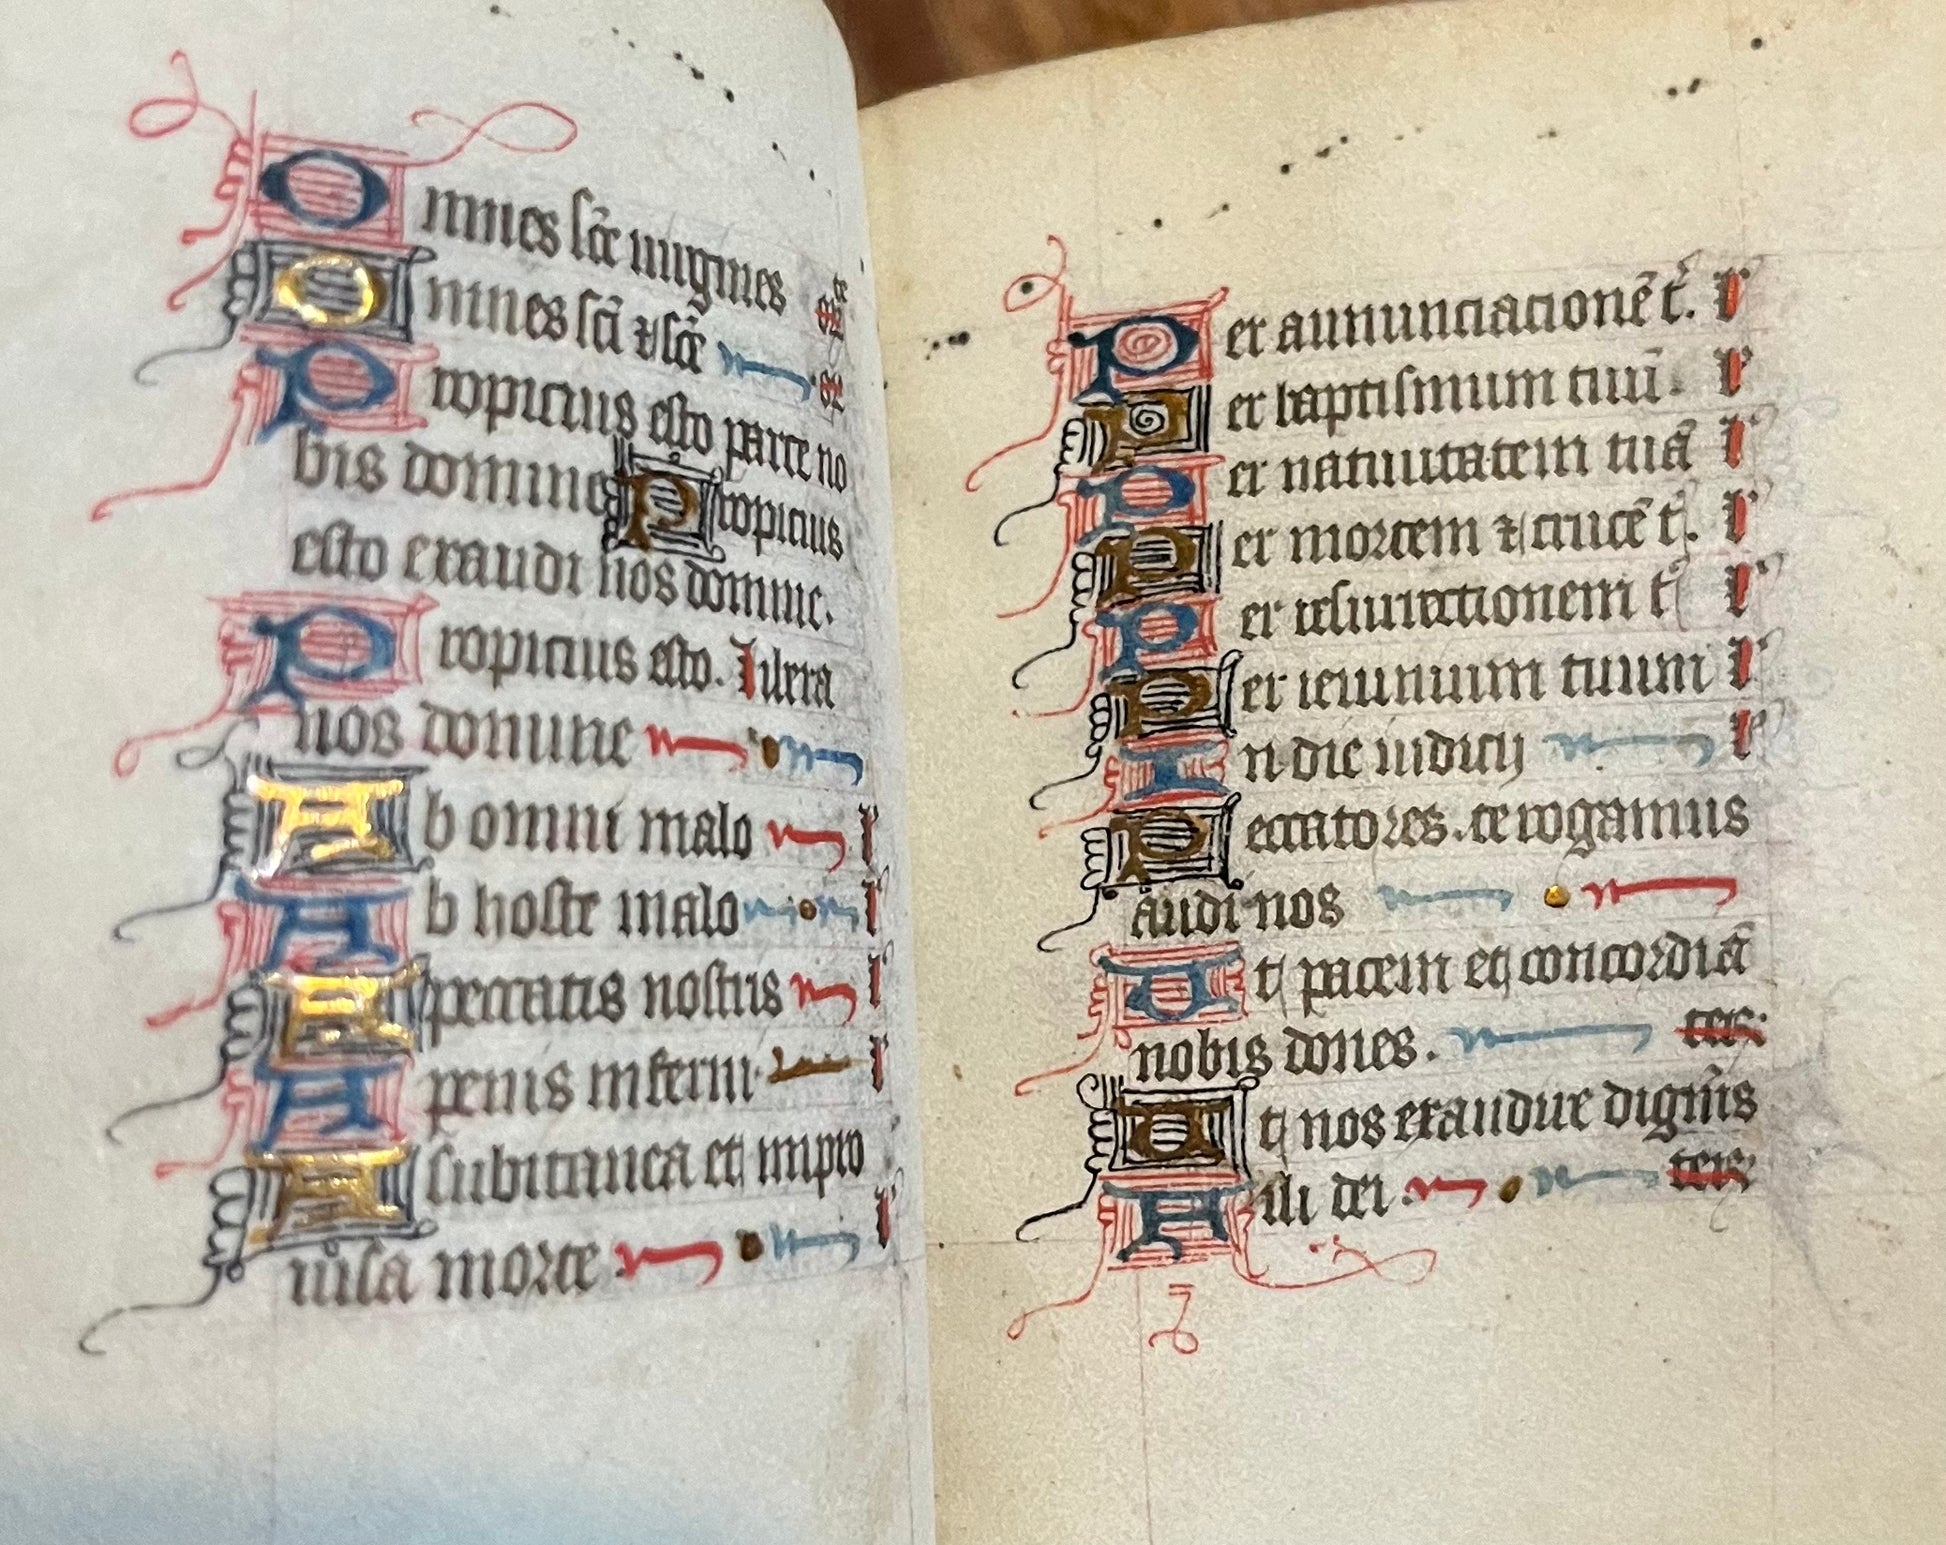 Omnes scē uirgines or
Omnes scī ⁊ scē or
Propicius esto parce no
bis domine Propicius
esto exaudi nos domine.
Propicius esto. libera
nos domine
Ab omni malo l
Ab hoste malo l
A peccatis nostris l
A penis inferni. l
A subitanea et impro
uisa morte l
Per annunciacionē t. l
Per baptismum tuū. l
Per natiuitatem tuā l
Per mortem ⁊ crucē t. l
Per resurrectionem t l
Per ieiunium tuum l
In die iudicij l
Peccatores. te rogamus
audi nos
Ut pacem et concordiā
nobis dones. ter.
Ut nos exaudire digneris
Fili dei. ter.